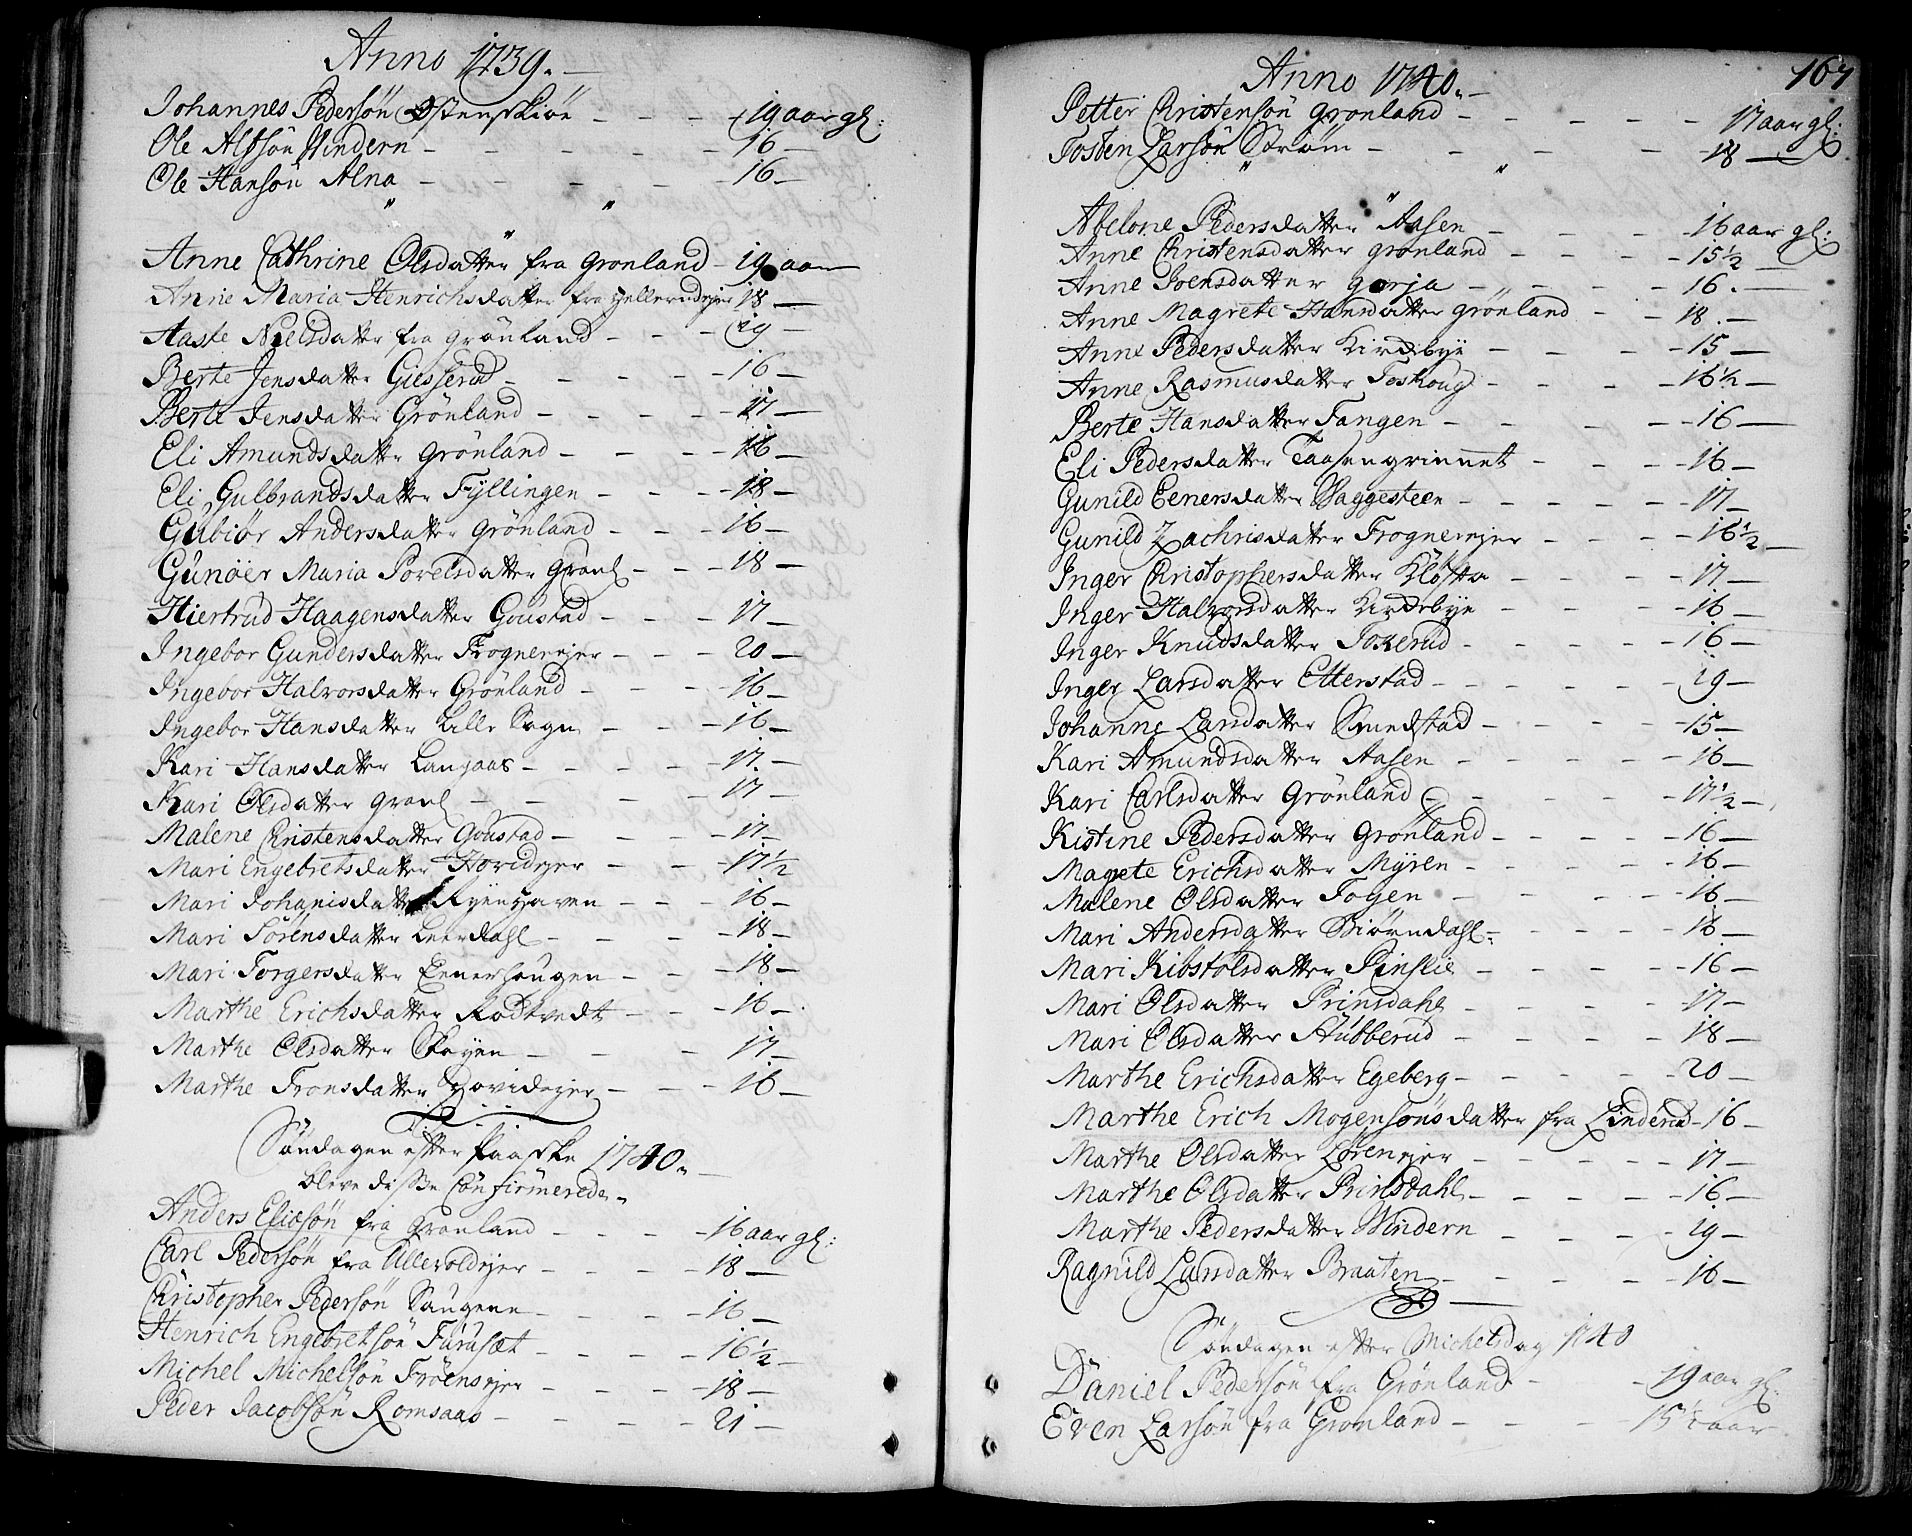 Anno 1739.
Johannes Pedersön Østenskiöe - - - 19 aar gl:
Ole Alfsön Vindern - - - - - 16 -
Ole Hansön Alna - - - - - 16 -
Anne Cathrine Olsdatter fra Grönland - 19 aar
Anne Maria Henrichsdatter fra Hellerudejer 18 -
Aaste Nielsdatter fra Grönland - - - 19 -
Berte Jensdatter Giesserud - - - - 16 -
Berte Jensdatter Grönland - - - - 17 -
Eli Amundsdatter Grönland - - - - 16 -
Eli Gulbrandsdatter Fyllingen - - - - 18 -
Gubiör Andersdatter Grönland - - - 16 -
Gunöer Maria Povelsdatter Grönl - - - 18 -
Hiertrud Haagensdatter Goustad - - - 17 -
Ingebor Gundersdatter Frognerejer - - - 20 -
Ingebor Halvorsdatter Grönland - - - 16 -
Ingebor Hansdatter Lille Sogn - - - 16 -
Kari Hansdatter Langaas - - - - 17 -
Kari Olsdatter Grönl - - - - 17 -
Malene Christensdatter Goustad - - - - 17 -
Mari Engebretsdatter Hovidejer - - - 17½
Mari Johanisdatter Ryenhaven - - - 16 -
Mari Sörensdatter Leerdahl - - - - 18 -
Mari Torgersdatter Eenerhougen - - - 18 -
Marthe Erichsdatter Rödtvedt - - - 16 -
Marthe Olsdatter Skøyen - - - 17 -
Marthe Fronsdatter Hovidejer - - - 16 -
Søndagen efter Paaske 1740.
bleve disse Confirmerede.
Anders Elicsön fra Grönland - - - - 16 aar gl:
Carl Pedersön fra Ullevoldejer - - - - 18 -
Christopher Pedersön Saugene - - - - 16 -
Henrich Engebretsön Furusæt - - - - 16½ -
Michel Michelsön Fröensejer - - - - 18 -
Peder Jacobsön Romsaas - - - - 21 -
Anno 1740.
167
Petter Christensön Grönland - - - - - 17 aar gl:
Tosten Larsön Ström - - - - - 18 -
Abelone Pedersdatter Aasen - - - - 16 aar gl:
Anne Christensdatter Grönland - - - - 15½ -
Anne Joensdatter Gorja - - - - 16. -
Anne Magrete Hansdatter Grönland - - 18. -
Anne Pedersdatter Kirckebye - - - - 15 -
Anne Rasmusdatter Toshoug - - - - 16½ -
Berte Hansdatter Tangen - - - - - 16 -
Eli Pedersdatter Taasengrinnet - - - - 16 -
Gunild Eenersdatter Vaggesteen - - - - 17 -
Gunild Zachrisdatter Frognerejer - - - - 16½ -
Inger Christophersdatter Kløfta - - - - 17 -
Inger Halvorsdatter Kirckebye - - - - 16 -
Inger Knudsdatter Tokerud - - - - - 16 -
Inger Larsdatter Etterstad - - - - - 19 -
Johanne Larsdatter Smedstad - - - - - 15 -
Kari Amundsdatter Aasen - - - - - 16 -
Kari Carlsdatter Grönland - - - - - 17½ -
Kistine Pedersdatter Grönland - - - - 16 -
Magrete Erichsdatter Myren - - - - - 16 -
Malene Olsdatter Togen - - - - 16 -
Mari Andersdatter Biörndahl - - - - 16 -
Mari Kiöstolsdatter Pinslie - - - - - 16 -
Mari Olsdatter Prinsdahl - - - - 17 -
Mari Olsdatter Stubberud - - - - 18 -
Marthe Erichsdatter Egeberg - - - - - 20 -
Marthe Erich Mogensöns datter fra Linderud - 16 -
Marthe Olsdatter Lörenejer - - - - - 17 -
Marthe Olsdatter Prinsdahl - - - - - 16 -
Marthe Pedersdatter Vindern - - - - 19 -
Ragnild Larsdatter Braaten - - - - - 16 -
Søndagen efter Michelsdag 1740
Daniel Pedersön fra Grönland - - 19 aar gl:
Even Larsön fra Grönland - - - - 15½ aar